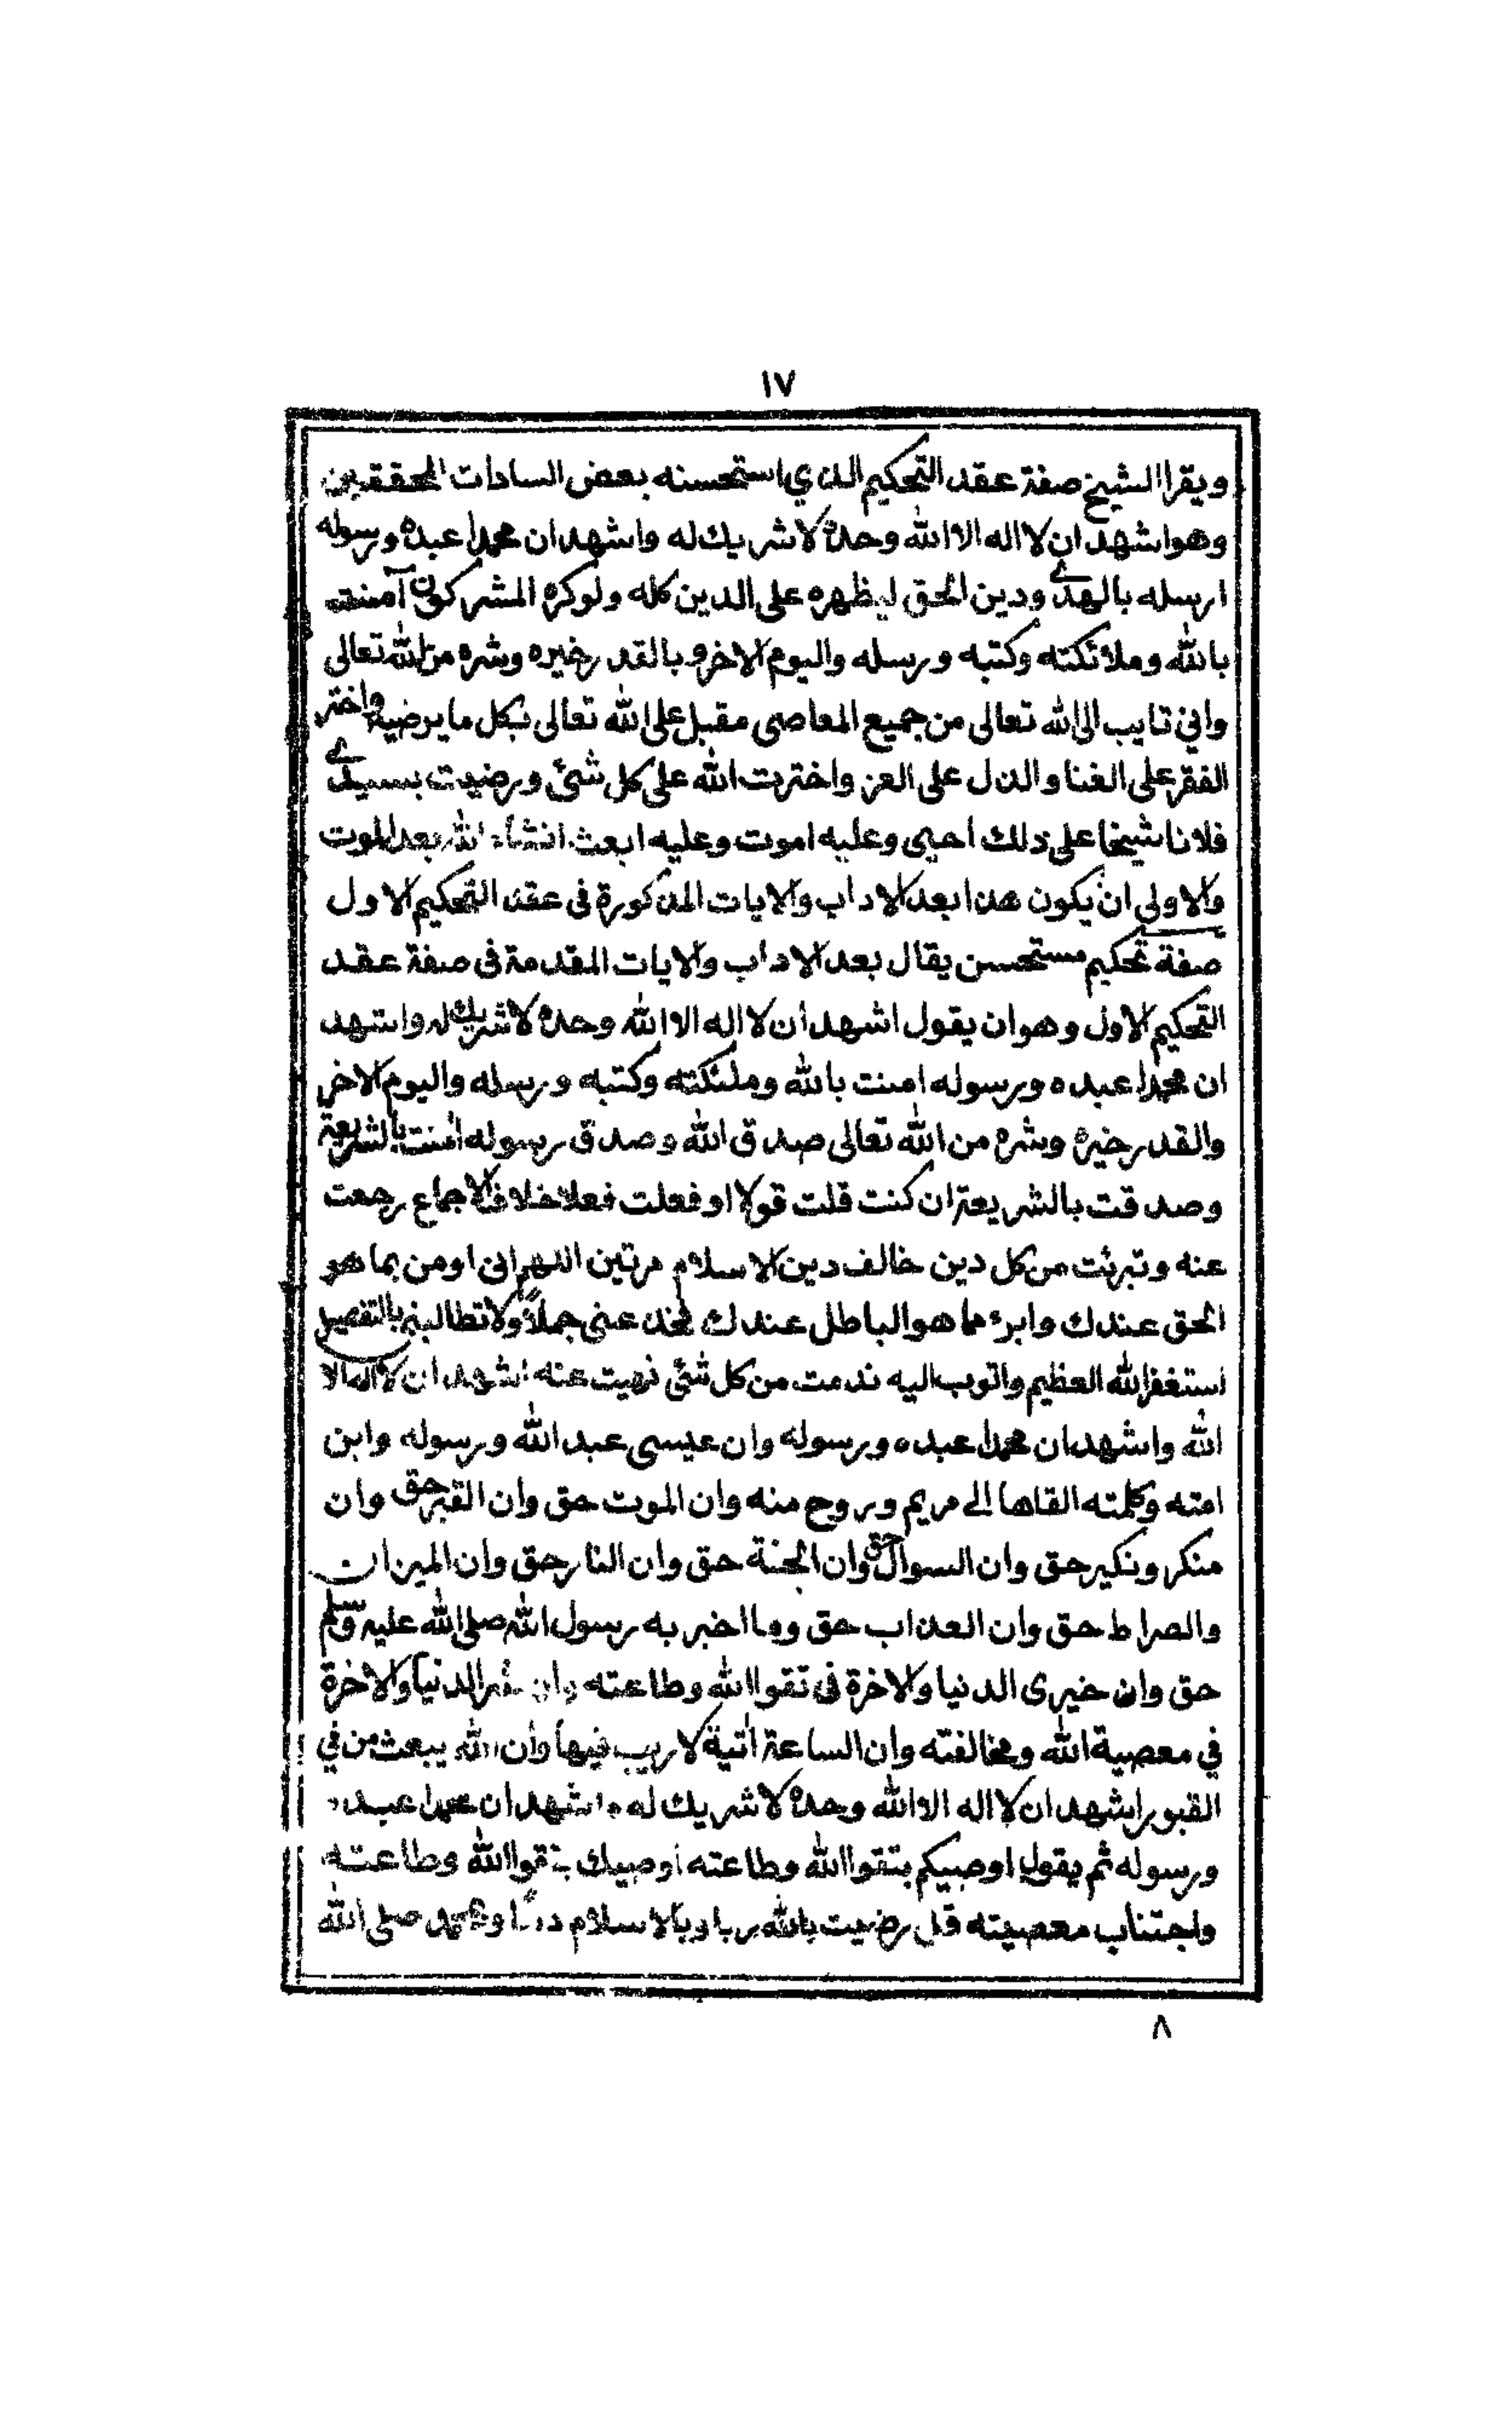 ١٧
ويقرا الشيخ صفة عقد التحكيم الذي استحسنه بعض السادات المحققين
وهو اشهد ان لا اله الا الله وحده لا شريك له واشهد ان محمدا عبده ورسوله
ارسله بالهدے ودين الحق ليظهره على الدين كله ولوكره المشركون آمنت
بالله وملائكته وكتبه ورسله واليوم الاخر وبالقدر خيره وشره من الله تعالى
واني تايب الى الله تعالى من جميع المعاصى مقبل على الله تعالى بكل ما يرضيه واختر
الفقر على الغنا والذل على العز واخترت الله على كل شئ ورضيت بسيدے
فلانا شيخا على ذلك احيى وعليه اموت وعليه ابعث انشاء الله بعد الموت
والاولى ان يكون هذا بعد الاداب والايات المذكورة فى عقد التحكيم الاول
صفة تحكيم مستحسن يقال بعد الاداب والايات المقدمة فى صفة عقد
التحكيم الاول وهو ان يقول اشهد ان لا اله الا الله وحده لا شريك له واشهد
ان محمدا عبده ورسوله امنت بالله وملئكته وكتبه ورسله واليوم الاخر
والقدر خيره وشره من الله تعالى صدق الله وصدق رسوله امنت بالشريعة
وصدقت بالشريعة ان كنت قلت قولا او فعلت فعلا خلاف الاجماع رجعت
عنه وتبرئت من كل دين خالف دين الاسلام مرتين اللهم انى اومن بما هو
الحق عندك وابرء مما هو الباطل عندك فخذ عنى جملاً ولا تطالبنى بالتفصيل
استغفر الله العظيم واتوب اليه ندمت من كل شئ نهيت عنه اشهد ان لا اله الا
الله واشهد ان محمدا عبده ورسوله وان عيسى عبد الله ورسوله وابن
امته وكلمته القاها الے مريم وروح منه وان الموت حق وان القبر حق وان
منكر ونكير حق وان السوال حق وان الجنة حق وان النار حق وان الميزان
والصراط حق وان العذاب حق وما اخبر به رسول الله صلى الله عليه وسلم
حق وان خيرى الدنيا والاخرة فى تقوا الله وطاعته وان شر الدنيا والاخرة
في معصية الله ومخالفته وان الساعة اتية لا ريب فيها وان الله يبعث من في
القبور اشهد ان لا اله الا الله وحده لا شريك له واشهد ان محمدا عبده
ورسوله ثم يقول اوصيكم بتقوا الله وطاعته اوصيك بتقوا الله وطاعته
واجتناب معصيته قل رضيت بالله ربا وبالاسلام دينًا وبمحمد صلى الله
٨